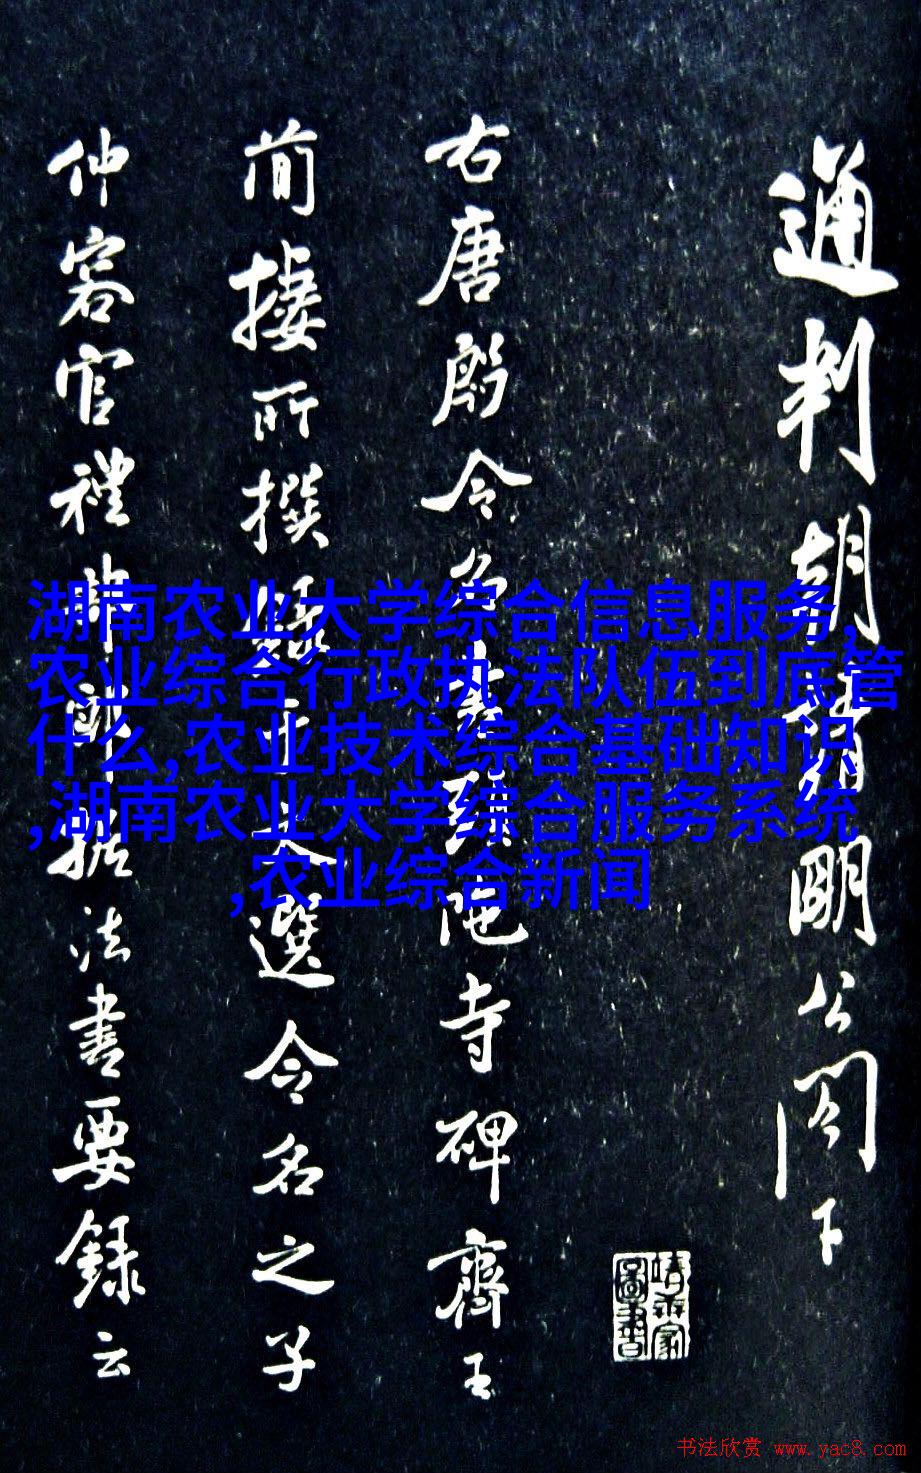 通判胡明公閤下
右唐殷令名書頭陀寺碑齊王
簡棲所撰文選令名之子
仲容官禮部郎據法書要録云
湖南农业大学综合信息服务,
农业综合行政执法队伍到底管
什么,农业技术综合基础知识
,湖南农业大学综合服务系统
,农业综合新闻
书法欣赏 www.yac8.com